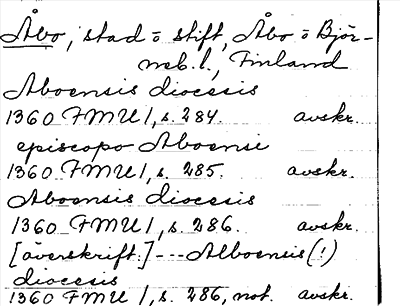 Åbo, stad o stift, Åbo o Björ-
neb. l., Finland
Aboensis diocesis
1360 FMU 1, s. 284. avskr.
episcopo Aboensi
1360 FMU 1, s. 285. avskr.
Aboensis diocesis
1360 FMU 1, s. 286. avskr.
[överskrift:] --- Alboensis (!)
diocesis
1360 FMU 1, s. 286, not. avskr.